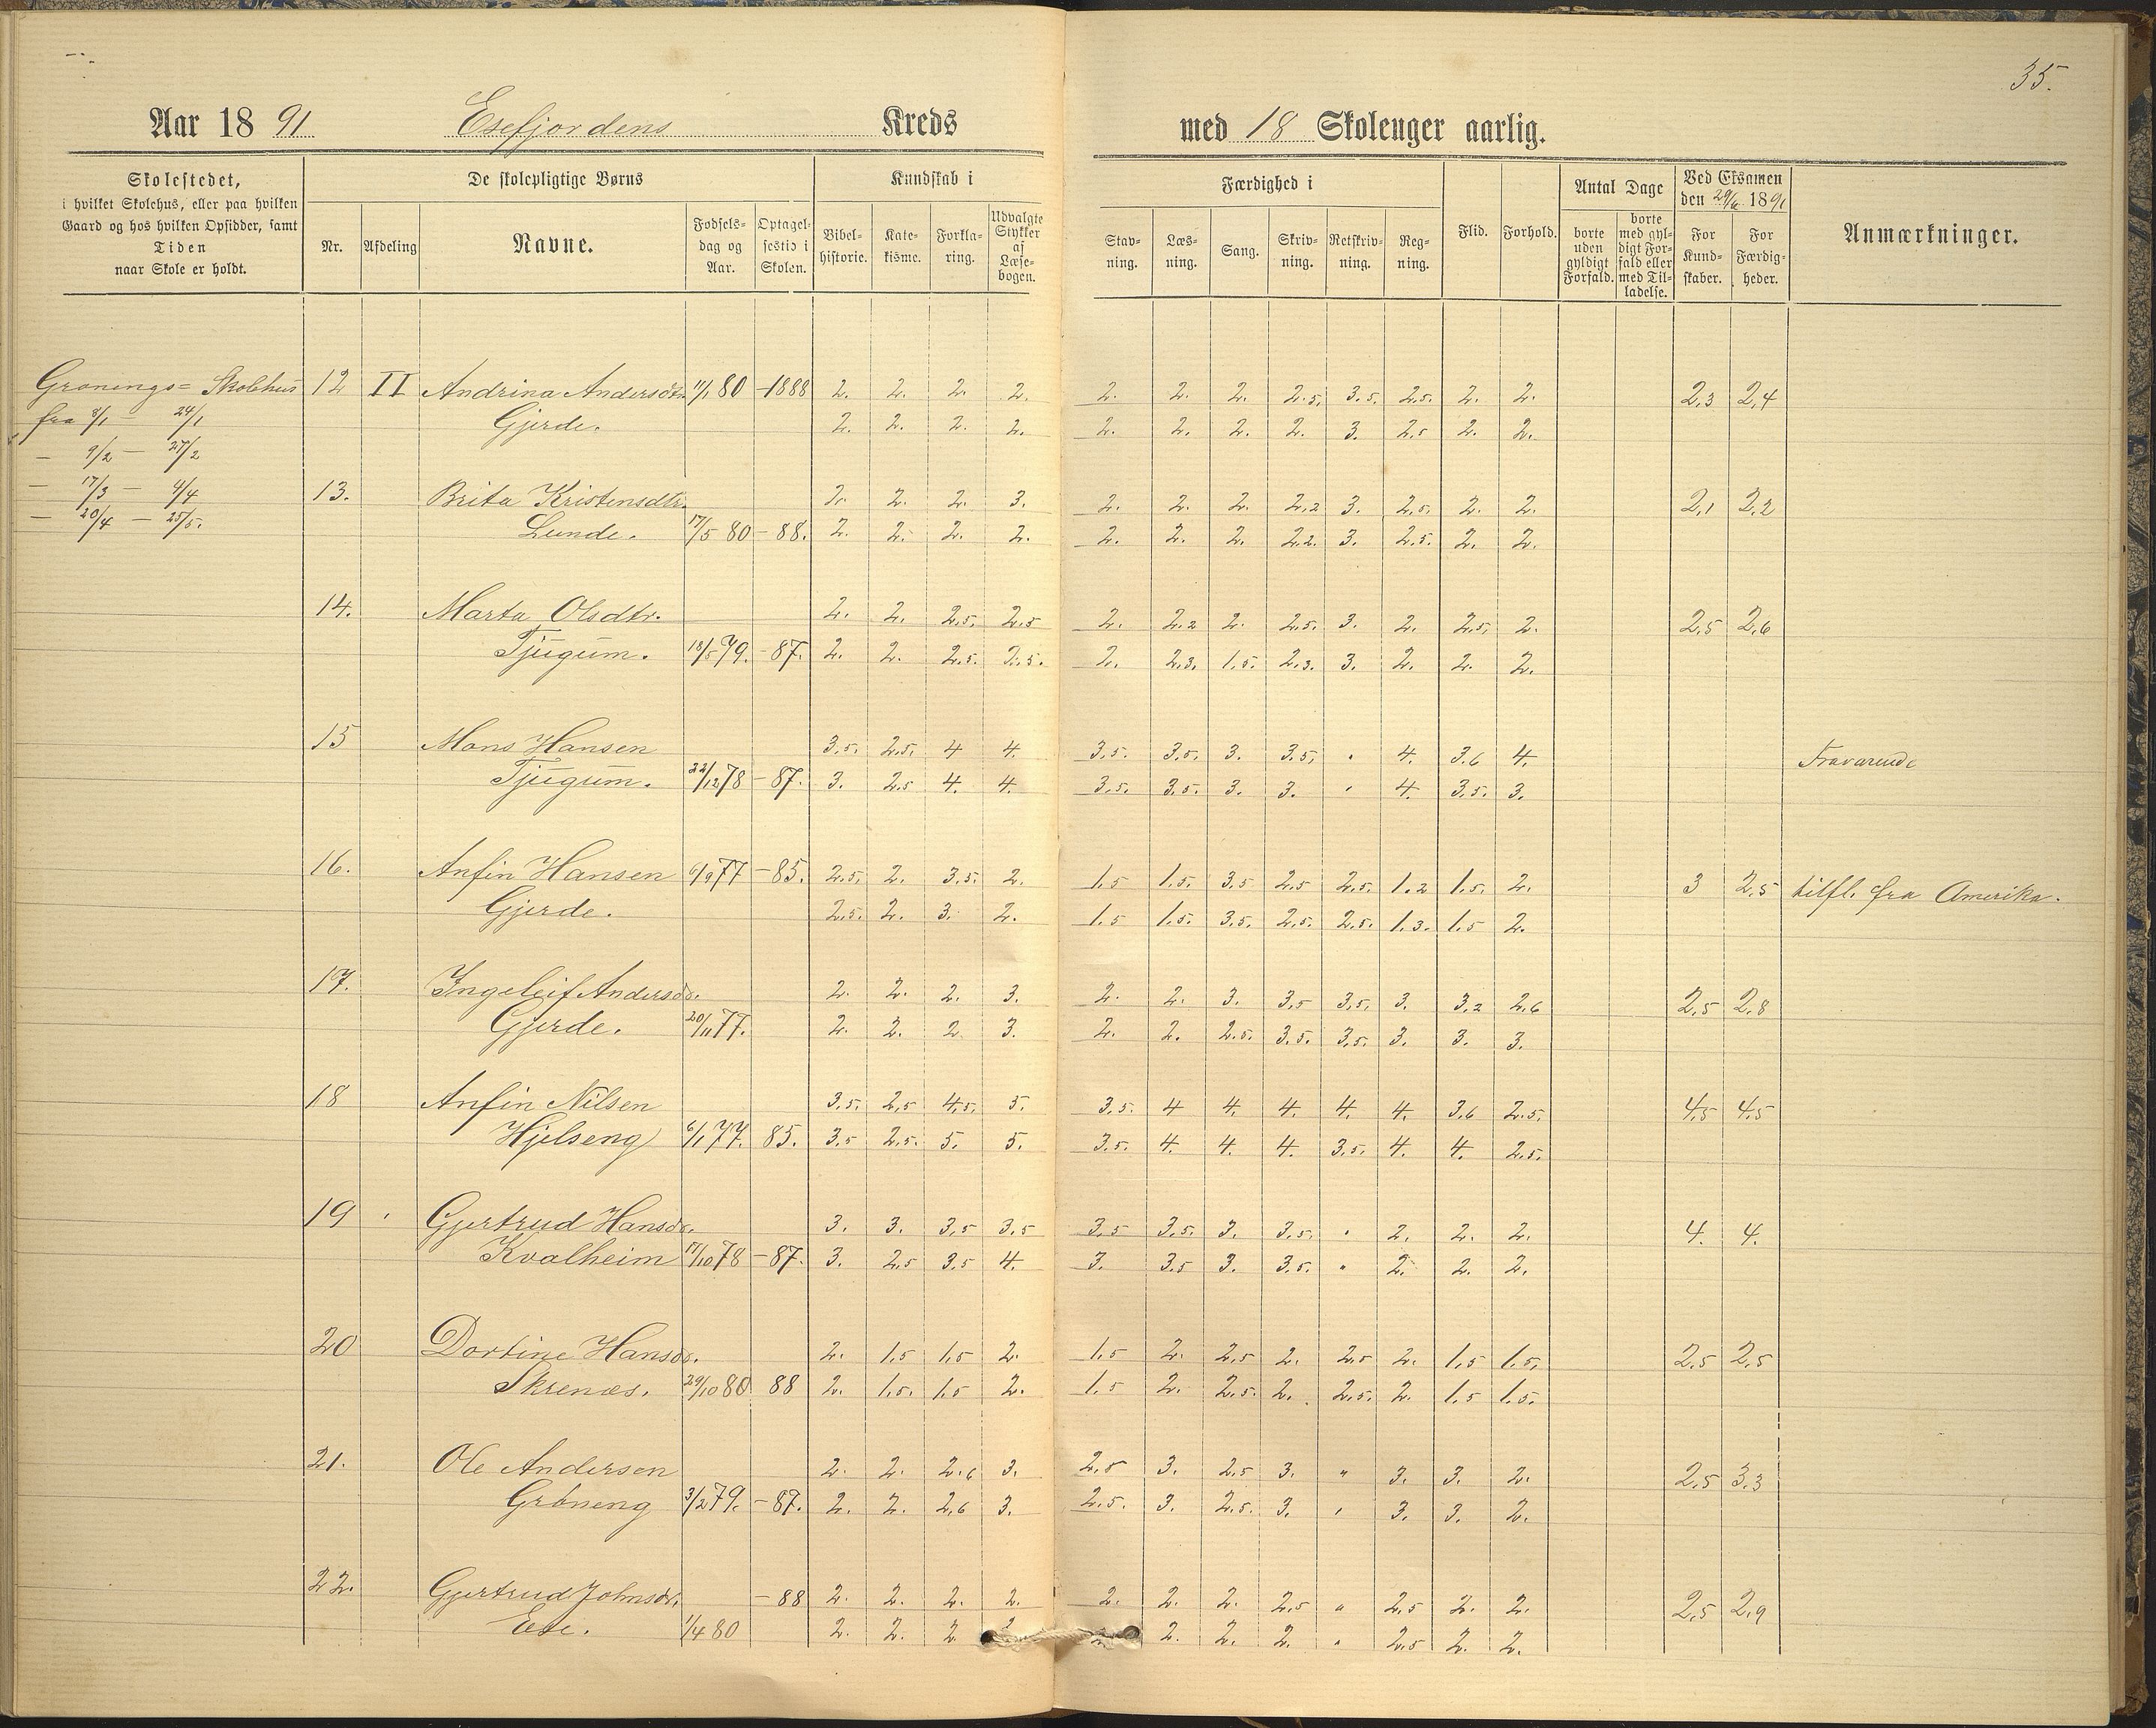 35.
Aar 1891 Esefjordens Kreds med 18 Skolenger aarlig.
Skolestedet,
i hvilket Skolehus, eller paa hvilken
Gaard og hos hvilken Opsidder, samt
Tiden
naar Skole er holdt.
De skolepligtige Børns
Nr. Afdeling Navne. Fødsels-dag og Aar. Optagelsestid i Skolen.
Kundskab i
Bibelhistorie. Katekisme. Forklaring. Udvalgte Stykker af Læsebogen.
Færdighed i
Stavning. Læsning. Sang. Skrivning. Retskrivning. Regning.
Flid. Forhold.
Antal Dage
borte uden gyldigt Forfald. borte med gyldigt Forfald eller med Tilladelse.
Ved Eksamen
den 29/6 1891
For Kundskaber. For Færdigheder.
Anmærkninger.
Gronings= Skolehus
fra 8/1 — 24/1
— 9/2 — 27/2
— 17/3 — 4/4
— 20/4 — 25/5.
12 II Andrina Andersdtr. 11/1 80 -1888 2. 2. 2. 2. 2. 2. 2. 2.5. 3.5. 2.5. 2. 2. 2,3 2,4
Gjerde. 2. 2. 2. 2. 2. 2. 2. 2. 3. 2.5 2. 2.
13. Brita Kristensdtr. 2. 2. 2. 3. 2. 2. 2. 2.2 3. 2.5. 2. 2. 2,1 2,2
Lunde. 17/5 80 - 88. 2. 2. 2. 2. 2. 2. 2. 2.2. 3. 2.5. 2. 2.
14. Marta Olsdtr. 2. 2. 2.5. 2.5 2. 2.2 2. 2.5. 3. 2. 2.5. 2. 2,5 2,6
Tjugum. 18/5 79. - 87. 2. 2. 2.5. 2.5. 2. 2.3. 1.5. 2.3. 3. 2. 2. 2.
15 Mons Hansen 3.5. 2.5. 4 4. 3.5. 3.5. 3. 3.5. " 4. 3.6 4. Fraværende
Tjugum. 22/12 78 - 87. 3. 2.5 4. 4. 3.5. 3.5. 3. 3. " 4. 3.5. 3.
16. Anfin Hansen 6/9 77 - 85. 2.5. 2. 3.5. 2. 1.5 1.5. 3.5 2.5 2.5. 1.2 1.5. 2. 3 2,5 tilfl. fra Amerika.
Gjerde. 2.5. 2. 3. 2. 1.5 1.5. 3.5. 2.5. 2.5. 1.3. 1.5 2.
17. Ingeleif Andersdr. 2. 2. 2. 3. 2. 2. 3. 3.5 3.5. 3. 3.2 2.6 2,5 2,8
Gjerde. 20/11 77. 2. 2. 2. 3. 2. 2. 2.5. 3.5. 3.5. 3. 3. 3.
18 Anfin Nilsen 3.5. 2.5 4.5. 5. 3.5. 4 4. 4. 4. 4. 3.6 2.5. 4,5 4,5
Hjelseng 6/1 77. 85. 3.5 2.5. 5. 5. 3.5. 4. 4. 4. 3.5. 4. 4. 2.5.
19 Gjertrud Hansdr. 3. 3. 3.5 3.5 3.5 3.5. 3. 3.5. " 2. 2. 2. 4. 4.
Kvalheim 17/10 78 - 87. 3. 2.5 3.5 4. 3. 3.5 3. 3.5. " 2. 2. 2.
20 Dortine Hansdr. 2. 1.5 1.5 2. 1.5 2. 2.5 2. 2.5 2. 1.5 1.5. 2,5 2,5
Skrenæs. 29/10 80 88 2. 1.5. 1.5 2. 1.5 2. 2.5. 2. 2.5. 2. 1.5 1.5.
21. Ole Andersen 2. 2. 2.6 3. 2.5 3. 2.5 3. " 3. 3. 2. 2,5 3.3
Grøneng 3/2 79. - 87. 2. 2. 2.6 3. 2.5. 3. 2.5. 3. " 3. 3. 2.
22. Gjertrud Johnsdr. - 88 2. 2. 2. 2. 2. 2. 2. 2.5 " 2.5 2. 2. 2,5 2,9
Ese. 1/4 80 2. 2. 2. 2. 2. 2. " 2.5 2. 2.